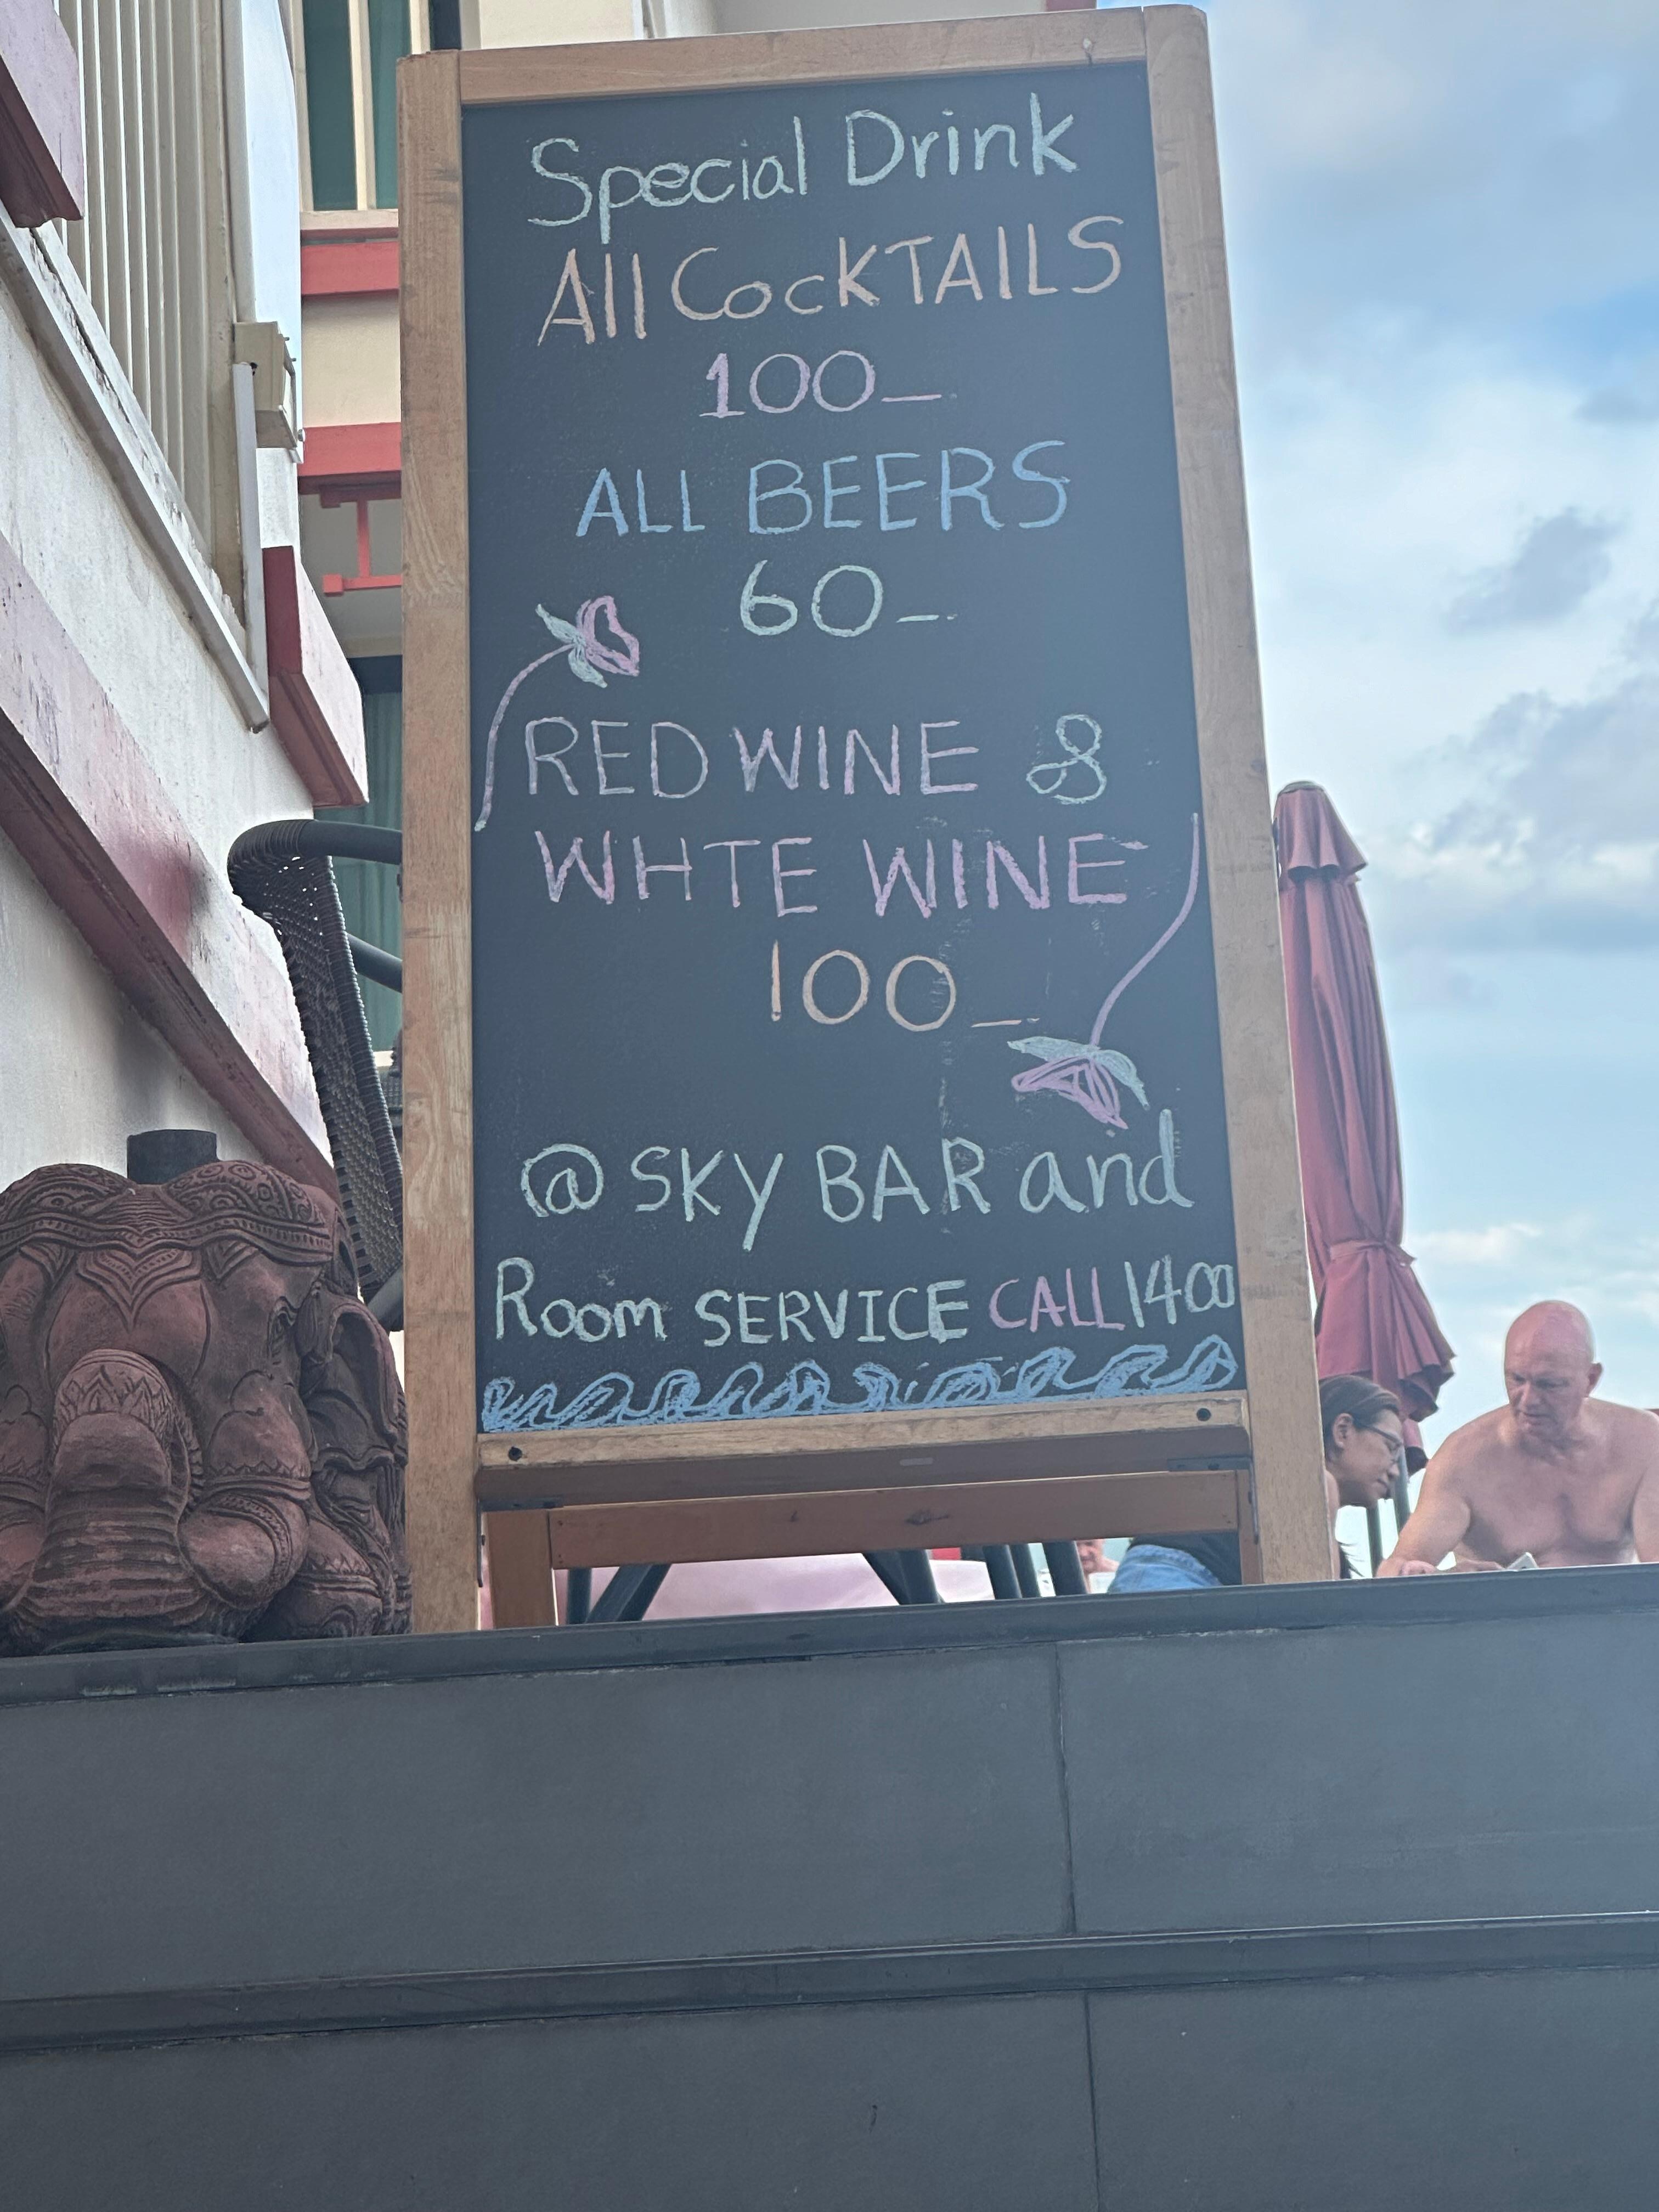 Special Drink
All CocKTAILS
100_
ALL BEERS
60_
RED WINE &
WHTE WINE
100_
@ SKY BAR and
Room SERVICE CALL 1400